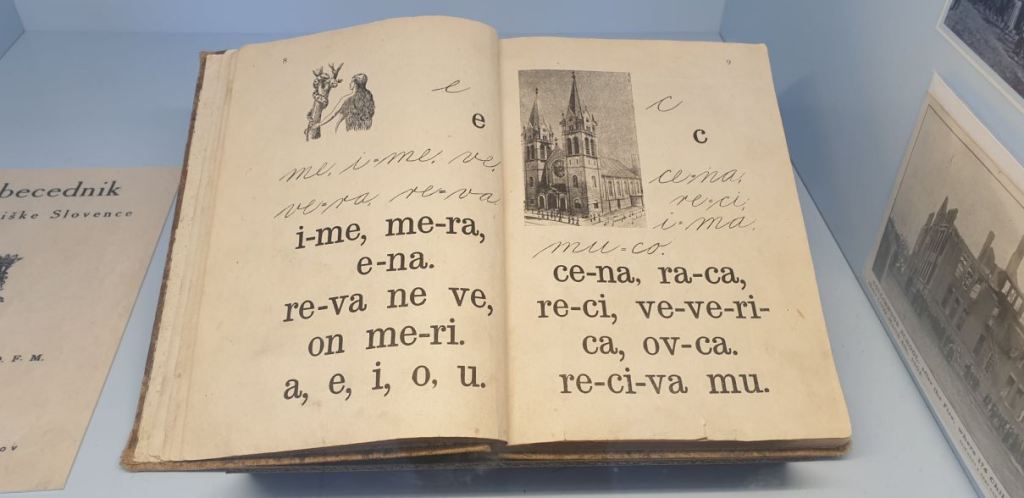 becednik
iške Slovence
O. F. M.
8
e
e
me, i-me, ve,
ve-ra, re-va
i-me, me-ra,
e-na.
re-va ne ve,
on me-ri.
a, e, i, o, u.
9
c
c
ce-na,
re-ci,
i-ma
mu-co.
ce-na, ra-ca,
re-ci, ve-ve-ri-
ca, ov-ca.
re-ci-va mu.